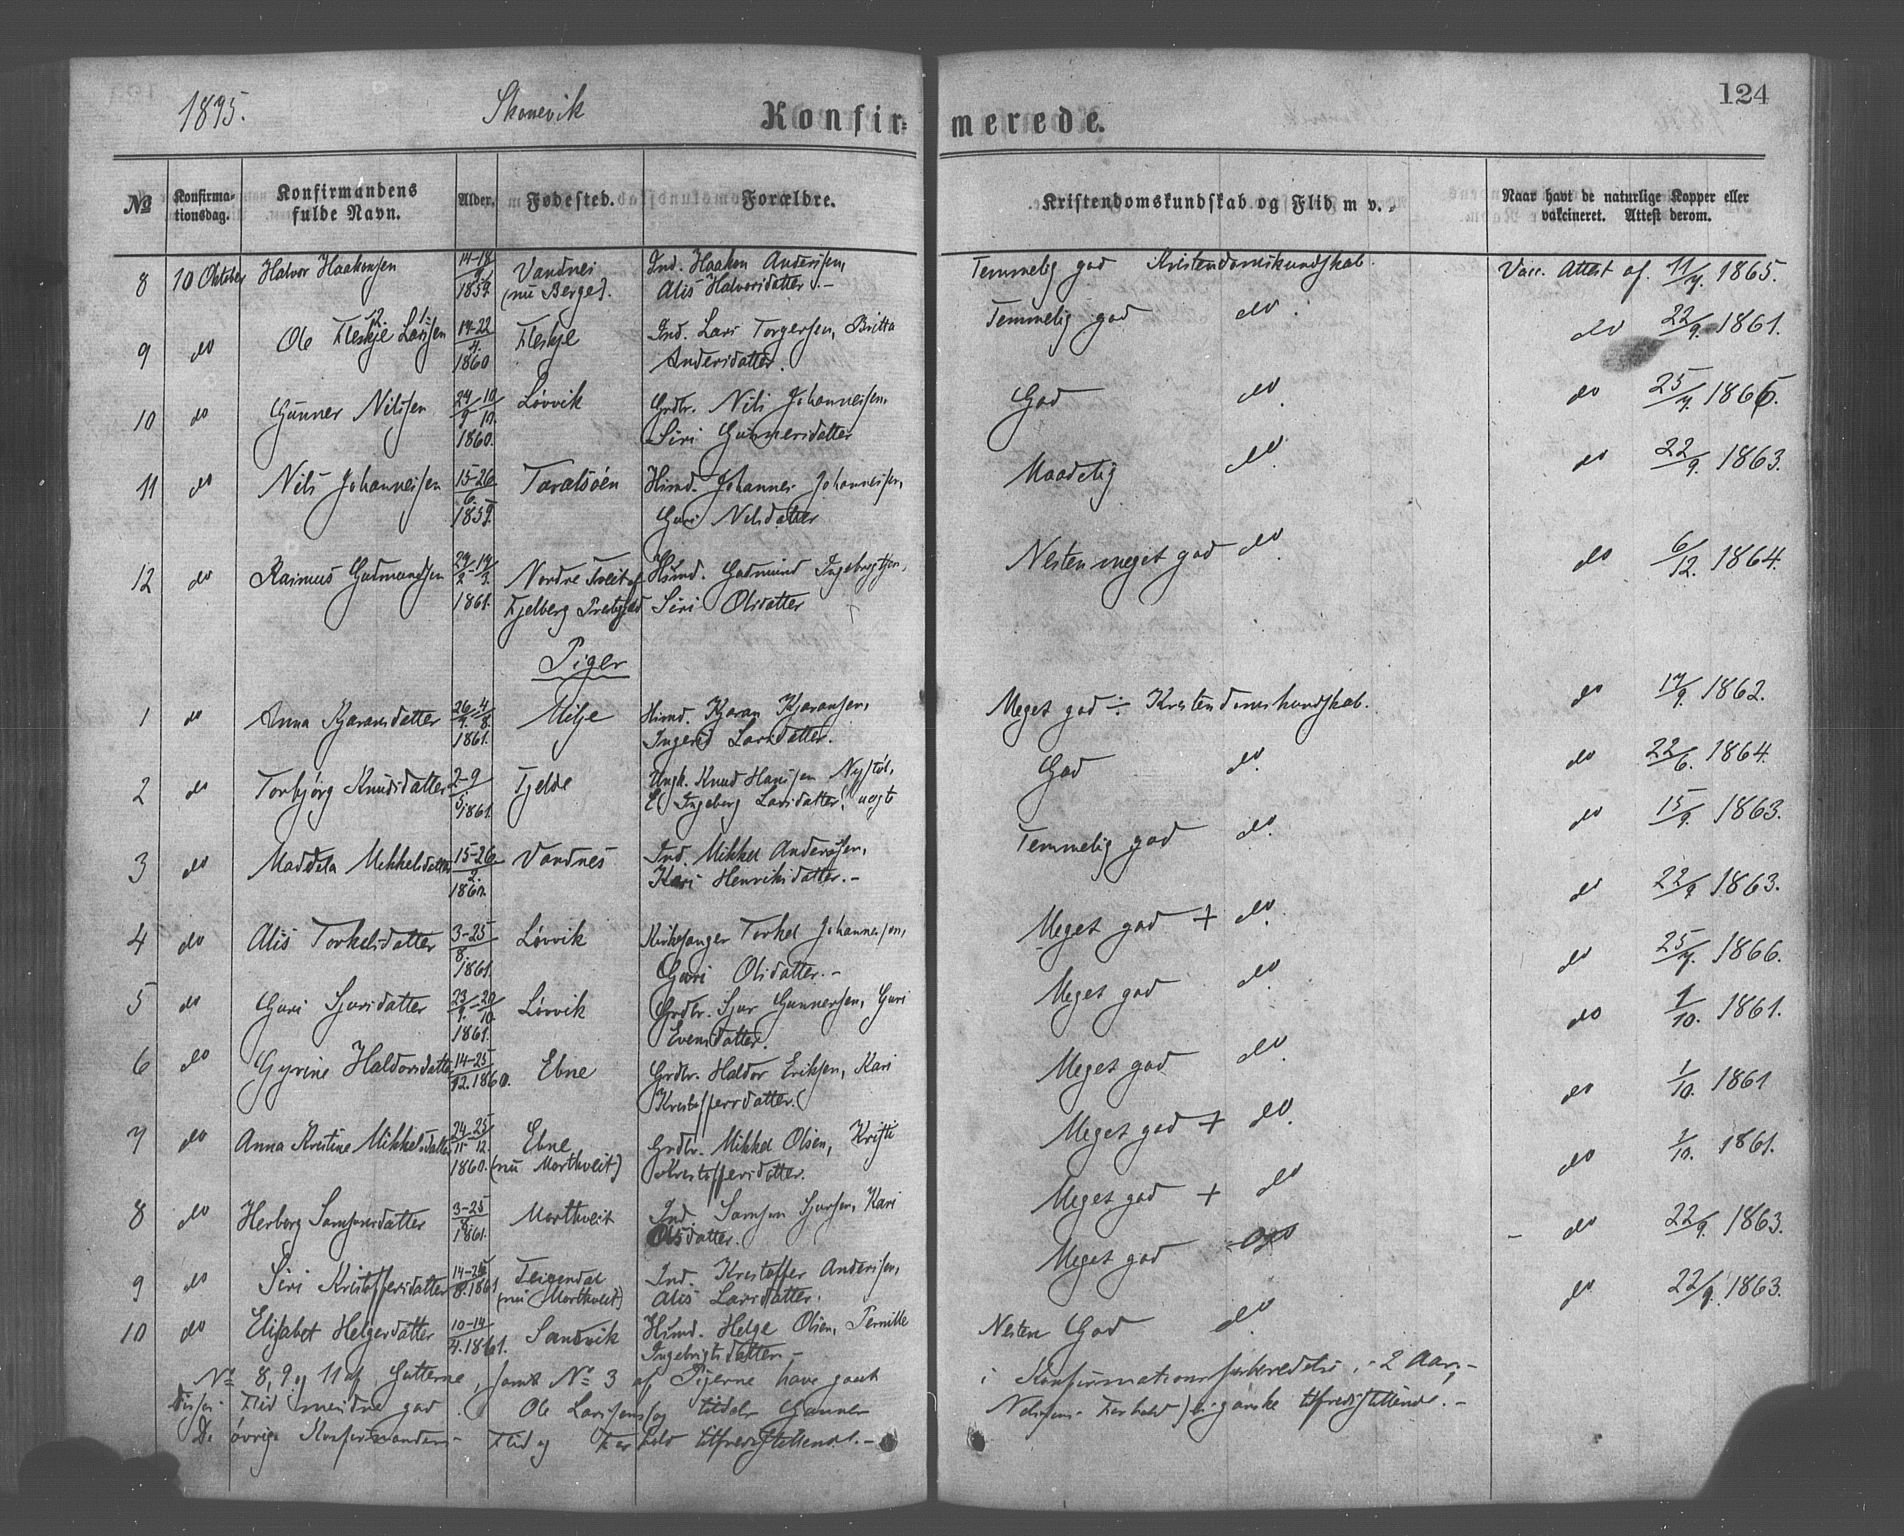 1875. Skonevik Konfir- merede. 124
№ Konfirma-tionsdag. Konfirmandens fulde Navn. Alder. Fødested. Forældre. Kristendomskundskab og Flid m v. Naar havt de naturlige Kopper eller vakcineret. Attest derom.
8 10 Oktober Halvor Haakonsen 14-18/9 1859. Vandnes Ind. Haakon Andersen, Temmelig god Kristendomskundskab. Vacc. Attest af 11/7. 1865.
(nu Berge). Alis Halvorsdatter.-
9 do Ole Fleskje Larssen 14-22/4. 1860 Fleskje Ind. Lars Torgersen, Britta Temmelig god do. do 22/9. 1861.
Andersdatter.
10 do Gunner Nilssen 24/9 10/10. 1860. Løvvik Grdbr. Nils Johannessen, God do. do 25/7. 1866.
Siri Gunnersdatter
11 do Nils Johannessen 15-26/6. 1859. Taralsøen Husmd. Johannes Johannessen, Maadelig do. do 22/9. 1863.
Guri Nilsdatter
12 do Rasmus Gudmundsen 24/2-14/3. 1861. Nordre Tveit af Husmd. Gudmund Ingebrigtsen, Nesten meget god do. do 6/12. 1864.
Fjelberg Prestegjeld Siri Olsdatter
Piger
1 do Anna Kjaransdatter 26/7.-4/8. 1861. Milje Husmd. Kjaran Kjaransen, Meget god ÷ Kristendomskundskab. do 17/9. 1862.
Ingerid Larsdatter.
2 do Torbjørg Knudsdatter 2-9/5. 1861. Tjelde Ungk. Knud Hansen Nystøl, God do. do 22/6. 1864.
Ingeborg Larsdatter. uegte
3 do Maddela Mikkelsdatter 15-26/2. 1860. Vandnes Ind. Mikkel Andersen, Temmelig god do. do 15/9. 1863.
Kari Henriksdatter.-
4 do Alis Torkelsdatter 3-25/8. 1861. Løvvik Kirkesanger Torkel Johannessen, Meget god + do. do 22/9 1863.
Guri Olsdatter.-
5 do Guri Sjursdatter 23/9.-20/10. 1861. Løvvik Grdbr. Sjur Gunnersen, Guri Meget god do. do 25/7. 1866.
Evensdatter.
6 do Gyrine Haldorsdatter 14-25/12. 1860. Ebne Grdbr. Haldor Eriksen, Kari Meget god do. do 1/10. 1861.
Kristoffersdatter.
7 do Anna Kristine Mikkelsdatter 24/11-25/12. 1860. Ebne Grdbr. Mikkel Olsen, Kristi Meget god + do. do 1/10. 1861
(nu Morthveit) Kristoffersdatter.
8 do Herborg Samsonsdatter 3-25/8. 1861. Morthveit Ind. Samson Sjursen, Kari Meget god + do do 1/10. 1861.
Olsdatter.
9 do Siri Kristoffersdatter 14-25/8. 1861. Teigendal Ind. Kristoffer Andersen, Meget god do - do 22/9. 1863.
(nu Morthveit) Alis Larsdatter.
10 do Elisabet Helgesdatter 10-14/4. 1861. Sandvik Husmd. Helge Olsen, Pernille Nesten God do. do 22/9. 1863.
Ingebrigtsdatter.-
No 8, 9 og 11 af Gutterne, samt No 3 af Pigerne have gaaet i Konfirmationsforberedelse i 2 Aar,-
Flid mindre god. Ole Larssens og tildels Gunner Nilssens Forhold ganske tilfredsstillende.-
De øvrige Konfirmanders Flid og Forhold tilfredsstillende.-